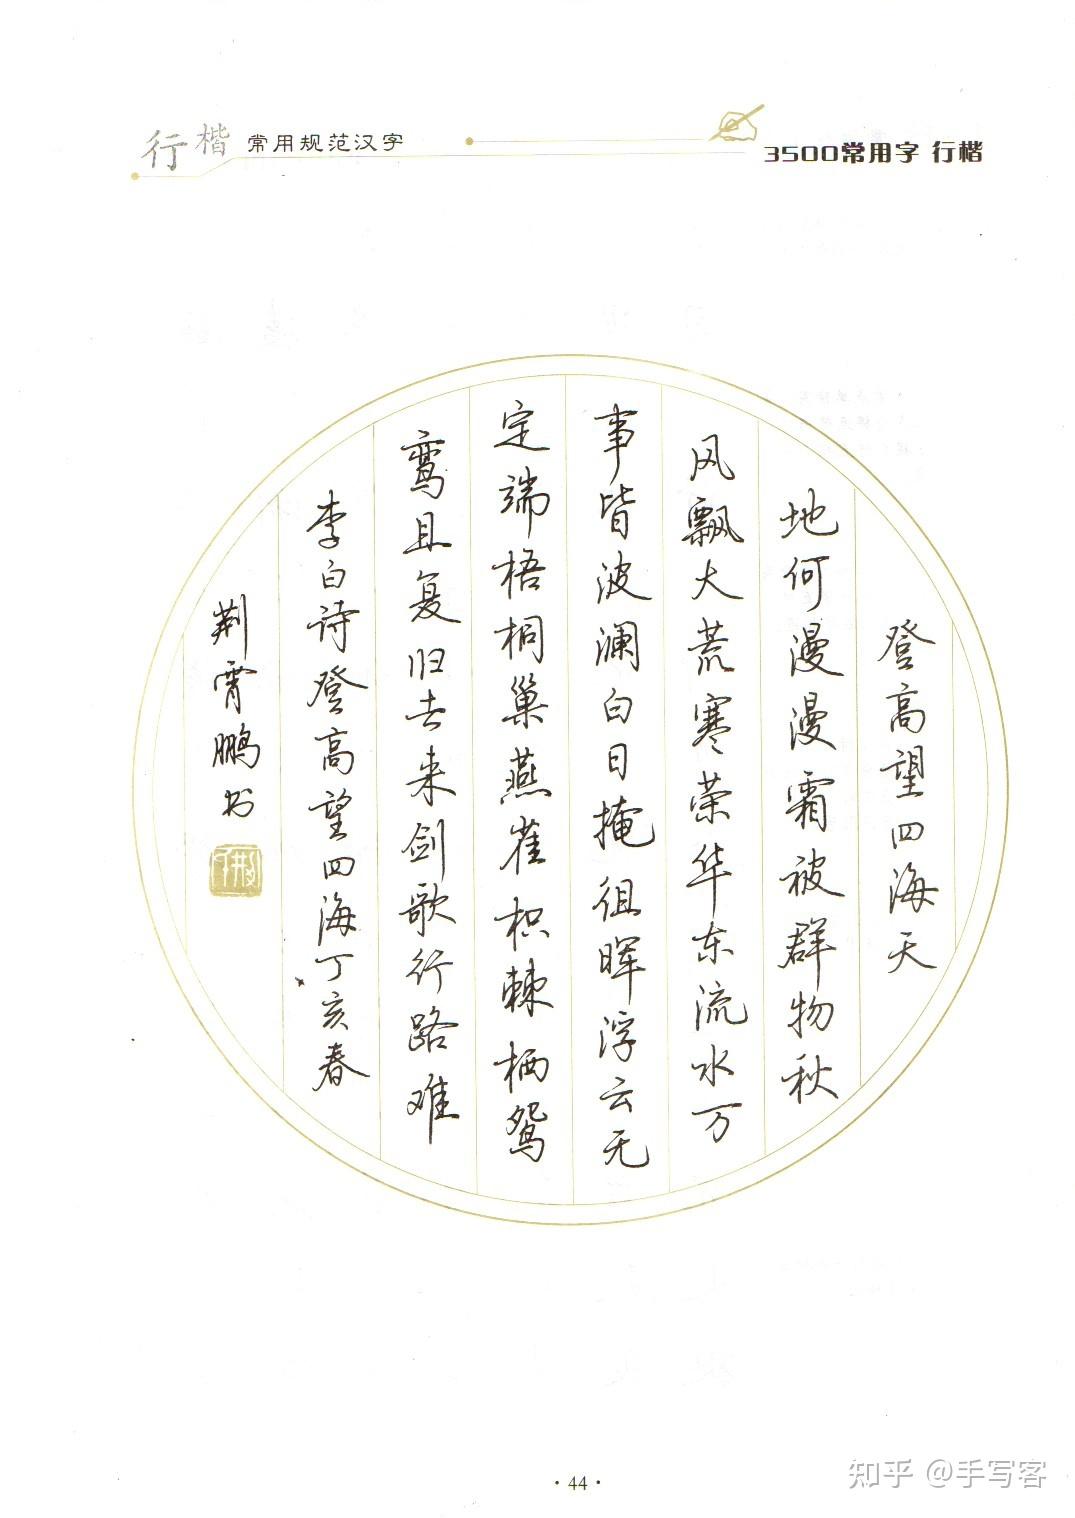 行楷 常用规范汉字
3500常用字 行楷
登高望四海天
地何漫漫霜被群物秋
风飘大荒寒荣华东流水万
事皆波澜白日掩徂晖浮云无
定端梧桐巢燕雀枳棘栖鸳
鸾且复归去来剑歌行路难
李白诗登高望四海丁亥春
荆霄鹏书
·44·
知乎 @手写客